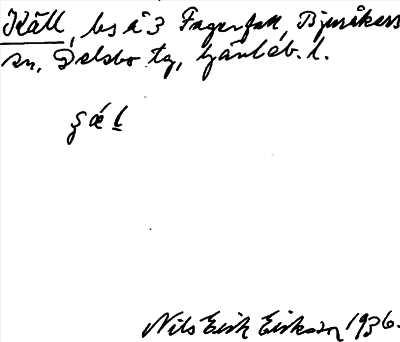 Käll, bs å 3 Fagerfall, Bjuråkers
sn, Delsbo tg, Gävleb. l.
Nils Erik Eriksson 1936.